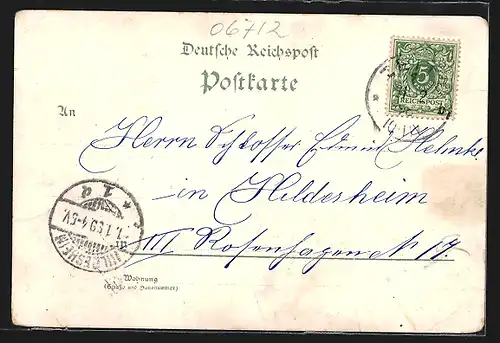 06712
Deutsche Reichspost
Postkarte
5
REICHSPOST
An
Herrn Schlosser Edmund Helmke
in Hildesheim
in III Rosenhagen N 17.
HILDESHEIM
Wohnung
(Straße und Hausnummer)